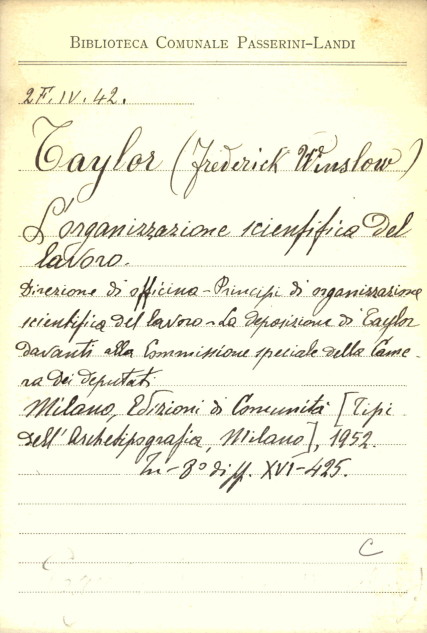 BIBLIOTECA COMUNALE PASSERINI-LANDI
2F.IV.42.
Taylor (Frederick Winslow)
L'organizzazione scientifica del
lavoro.
Direzione di officina - Principi di organizzazione
scientifica del lavoro - La deposizione di Taylor
davanti alla Commissione speciale della Came-
ra dei deputati
Milano, Edizioni di Comunità [Tipi
dell'Archetipografia, Milano], 1952.
In-8º diff. XVI-425.
C